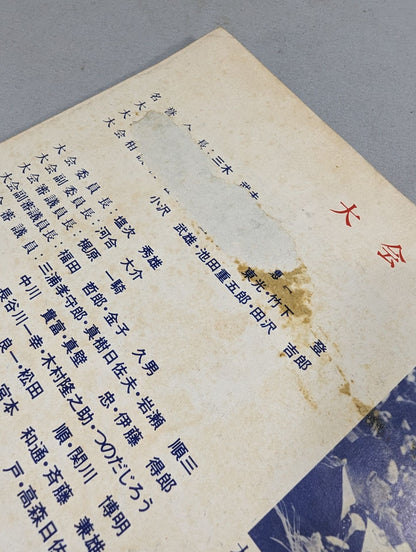 大会
名誉会長：三木 武夫
大
大会相 小沢 武雄・池田重五郎・田沢 吉郎
東光・竹下 登
大会委員長：塩次 秀雄
大会副委員長：河合 大介
大会審議員長：梶原 一騎
大会副審議員長：福田 哲郎・金子 久男
大会審議員：三浦孝守郎・真樹日佐夫・岩瀬 順三
中川 貴富・真壁 忠・伊藤 得郎
長谷川一幸・木村隆之助・つのだじろう
良一・松田 順・関川 博明
宮本 和通・斉藤 兼雄
戸・高森日佐